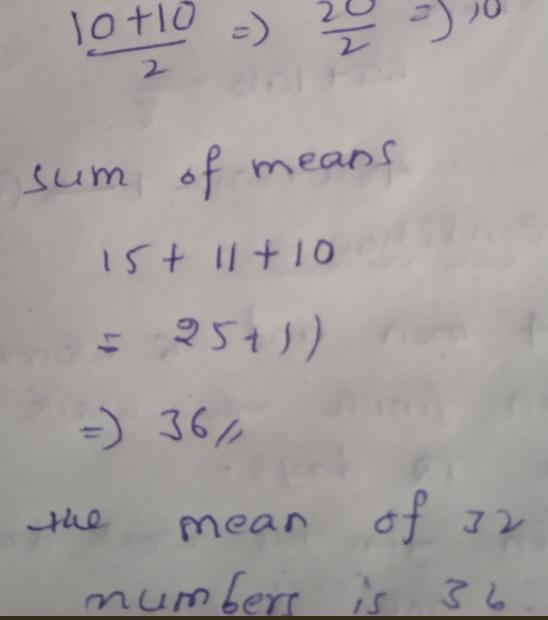 10+10/2 => 20/2 => 10
sum of means
15 + 11 + 10
= 25 + 11
=> 36 //
the mean of 32
numbers is 36.